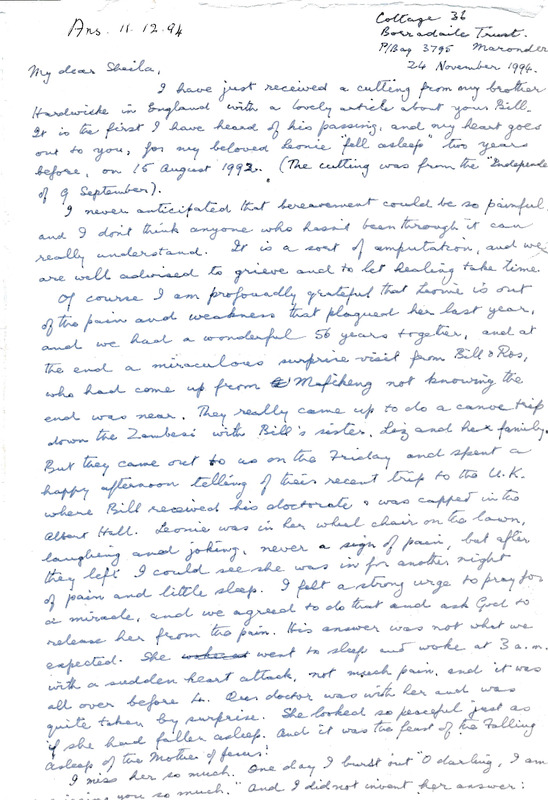 Ans. 11.12.94
Cottage 36
Borradaile Trust.
P/Bag 3795 Marondera
24 November 1994.
My dear Sheila,
I have just received a cutting from my brother
Hardwicke in England with a lovely article about your Bill.
It is the first I have heard of his passing, and my heart goes
out to you, for my beloved Leonie "fell asleep" two years
before, on 15 August 1992. (The cutting was from the "Independe
of 9 September).
I never anticipated that bereavement could be so painful,
and I don't think anyone who hasn't been through it can
really understand. It is a sort of amputation, and we
are well advised to grieve and to let healing take time.
Of course I am profoundly grateful that Leonie is out
of the pain and weakness that plagued her last year,
and we had a wonderful 56 years together, and at
the end a miraculous surprise visit from Bill & Ros,
who had come up from Mafikeng not knowing the
end was near. They really came up to do a canoe trip
down the Zambesi with Bill's sister, Liz and her family.
But they came out to us on the Friday and spent a
happy afternoon telling of their recent trip to the U.K.
where Bill received his doctorate & was capped in the
Albert Hall. Leonie was in her wheel chair on the lawn,
laughing and joking, never a sign of pain, but after
they left I could see she was in for another night
of pain and little sleep. I felt a strong urge to pray for
a miracle, and we agreed to do that and ask God to
release her from the pain. His answer was not what we
expected. She went to sleep and woke at 3 a.m.
with a sudden heart attack, not much pain, and it was
all over before 4. Our doctor was with her and was
quite taken by surprise. She looked so peaceful just as
if she had fallen asleep. And it was the feast of the Falling
Asleep of the Mother of Jesus!
I miss her so much. One day I burst out "O darling, I am
missing you so much." And I did not invent her answer: